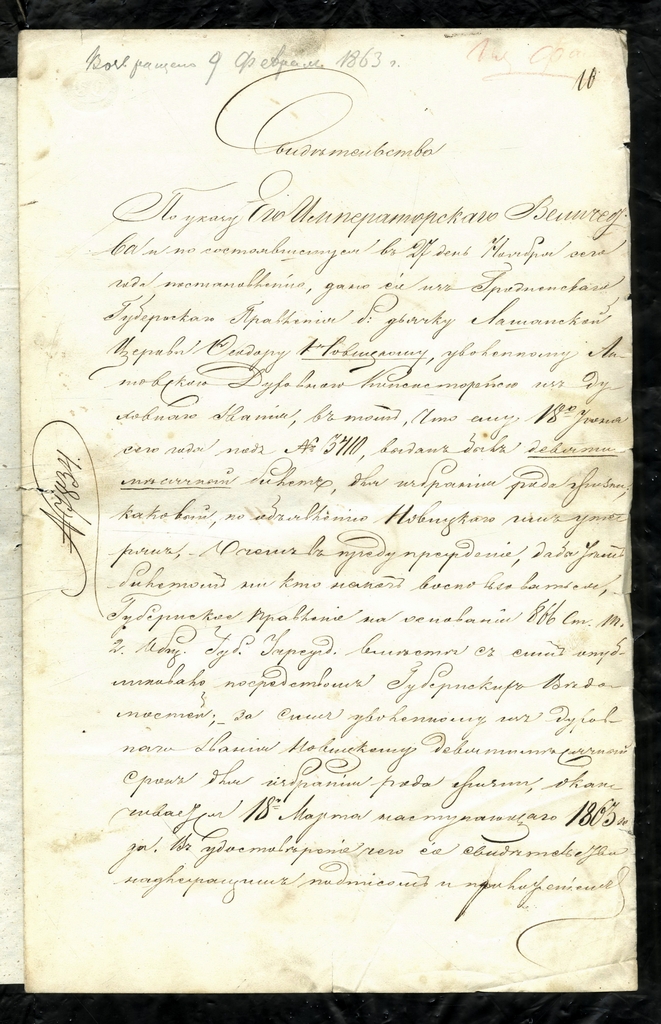 Возвращено 9 Февраля 1863 г.
10
Свидѣтельство
По указу Его Императорскаго Величест-
ва и по состоявшемуся въ 27 день Ноября сего
года постановленію, дано сіе изъ Гродненскаго
Губернскаго Правленія б: дьячку Лашанской
Церкви Ѳеодору Новицкому, уволенному Ли-
товскою Духовною Консисторіею изъ ду-
ховнаго званія, въ томъ, что ему 18го Іюня
сего года подъ № 3710, выданъ былъ девяти-
мѣсячный билетъ, для избранія рода жизни,
каковый, по объявленію Новицкаго имъ уте-
рянъ, О чемъ въ предупрежденіе, дабы этимъ
билетомъ никто не могъ воспользоваться,
Губернское Правленіе на основаніи 866 Ст. т.
2. Общ. Губ. Учрежд. вместѣ съ симъ опуб-
ликовано посредствомъ Губернскихъ Вѣдо-
мостей, за симъ уволенному изъ духов-
наго званія Новицкому девятимѣсячный
срокъ для избранія рода жизни, окан-
чивается 18го Марта наступающаго 1863 го-
да. Въ удостовѣреніе чего сіе свидѣтельство
надлежащимъ подписомъ и приложеніемъ
№ 7834.